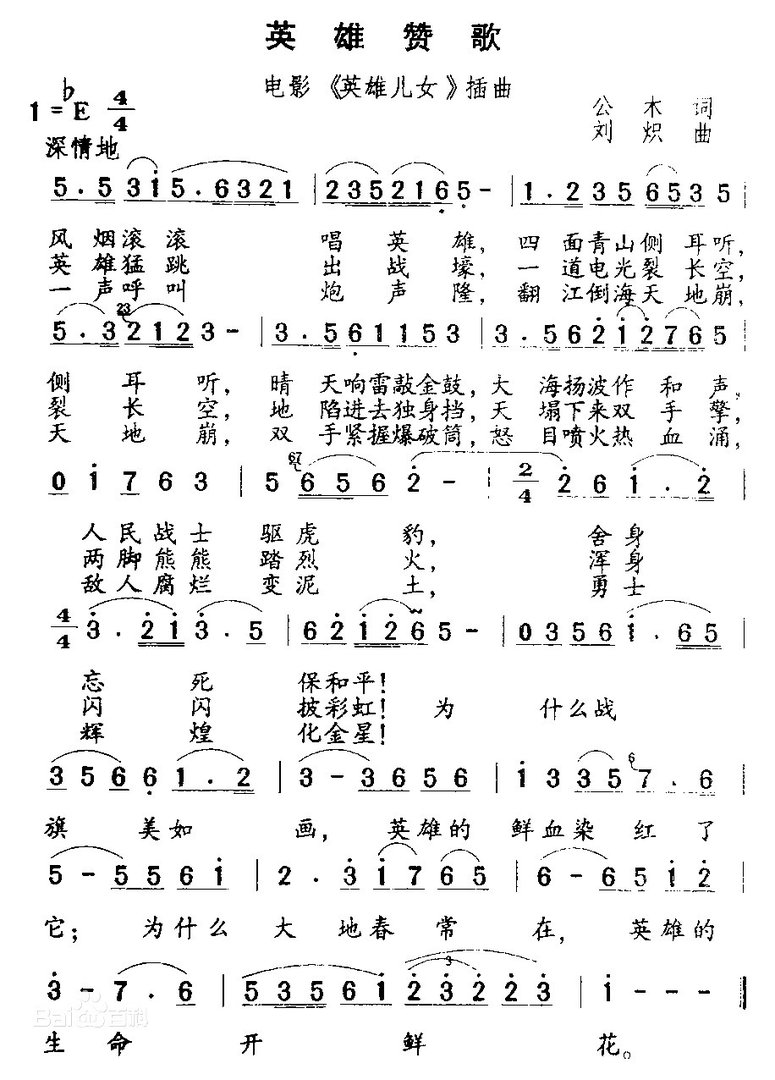 英雄赞歌
电影《英雄儿女》插曲
1=♭E 4/4
公木词
刘炽曲
深情地
5.5 3i 5.6321 | 2352165- | 1.235 6535 |
风烟滚滚 唱英雄，四面青山侧耳听，
英雄猛跳 出战壕，一道电光裂长空，
一声呼叫 炮声隆，翻江倒海天地崩，
5.32123- | 3.561153 | 3.562i2765 |
侧耳听，晴天响雷敲金鼓，大海扬波作和声，
裂长空，地陷进去独身挡，天塌下来双手擎，
天地崩，双手紧握爆破筒，怒目喷火热血涌，
0i763 | 56562- | 2/4 26i.2 |
人民战士驱虎豹，舍身
两脚熊熊踏烈火，浑身
敌人腐烂变泥土，勇士
4/4 3.2i3.5 | 62i265- | 0356i.65 |
忘死保和平！
闪闪披彩虹！为什么战
辉煌化金星！
3566i.2 | 3-3656 | i3357.6 |
旗美如画，英雄的鲜血染红了
5-556i | 2.3i765 | 6-65i2 |
它；为什么大地春常在，英雄的
3-7.6 | 5356i23223 | i---‖
生命开鲜花。
Bai百科